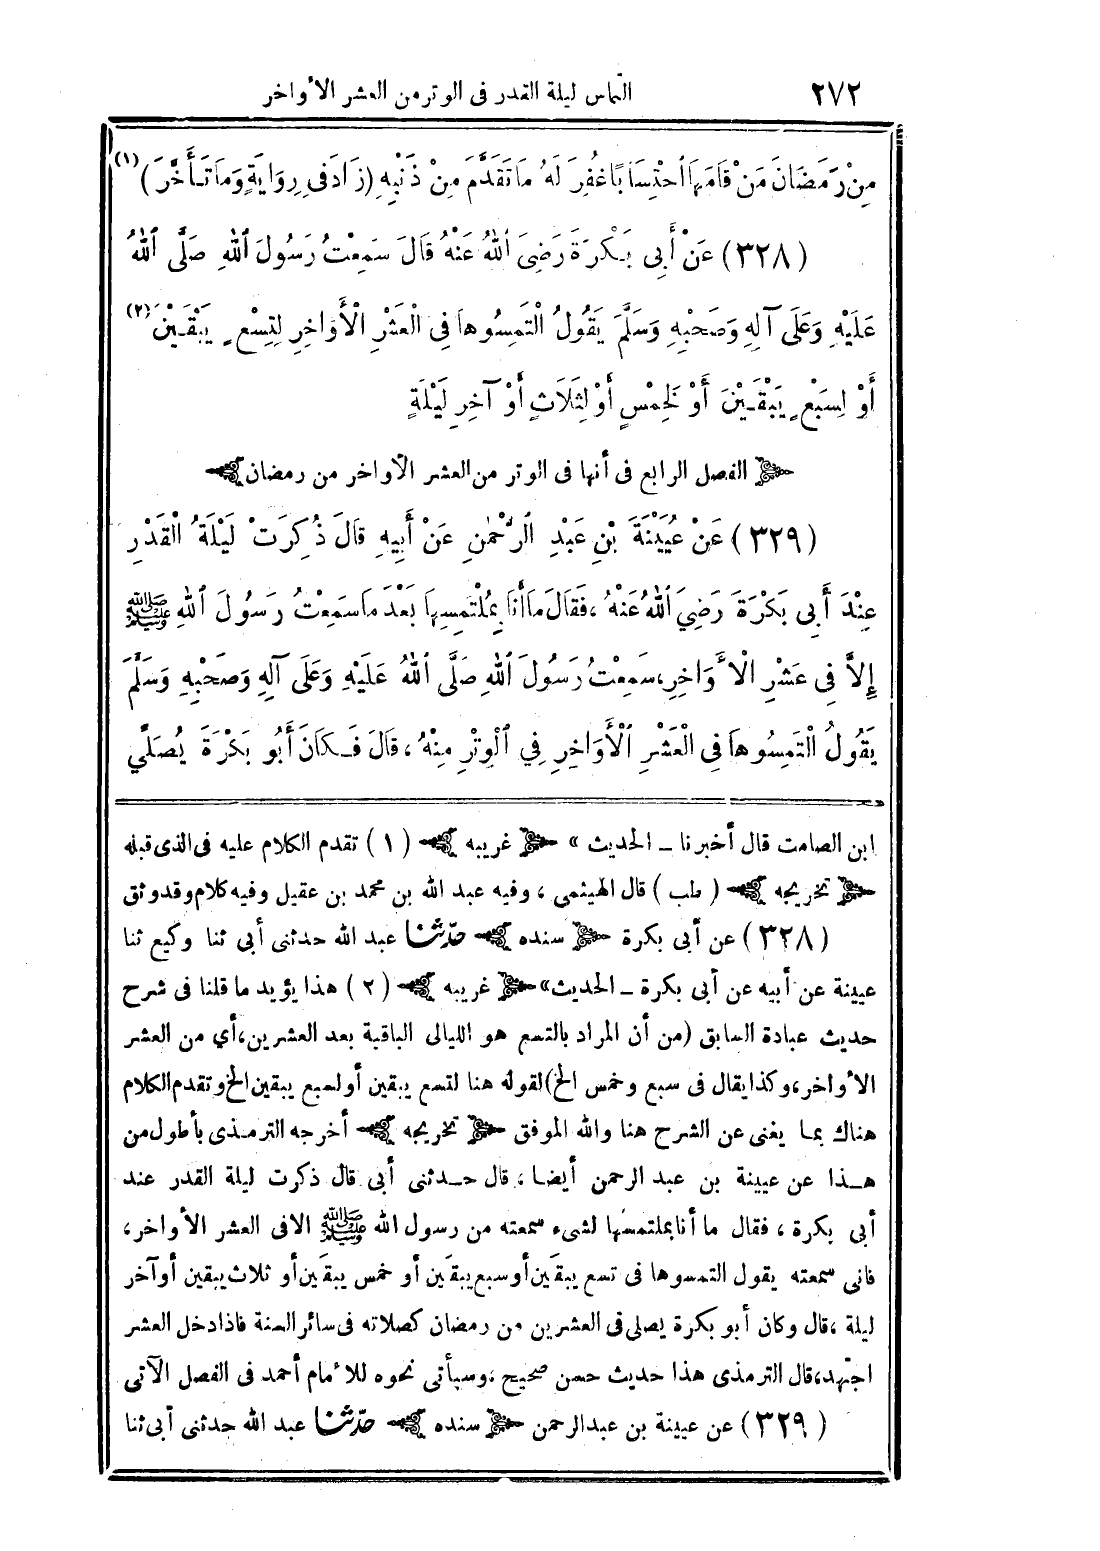 ٢٧٢ التماس ليلة القدر فى الوتر من العشر الأواخر
مِنْ رَمَضَانَ مَنْ قَامَهَا احْتِسَابًا غُفِرَ لَهُ مَا تَقَدَّمَ مِنْ ذَنْبِهِ (زَادَ فِى رِوَايَةٍ وَمَا تَأَخَّرَ) (١)
(٣٢٨) عَنْ أَبِى بَكْرَةَ رَضِىَ اللهُ عَنْهُ قَالَ سَمِعْتُ رَسُولَ اللهِ صَلَّى اللهُ
عَلَيْهِ وَعَلَى آلِهِ وَصَحْبِهِ وَسَلَّمَ يَقُولُ الْتَمِسُوهَا فِى الْعَشْرِ الْأَوَاخِرِ لِتِسْعٍ يَبْقَيْنَ (٢)
أَوْ لِسَبْعٍ يَبْقَيْنَ أَوْ لِخَمْسٍ أَوْ لِثَلَاثٍ أَوْ آخِرِ لَيْلَةٍ
الفصل الرابع فى أنها فى الوتر من العشر الأواخر من رمضان
(٣٢٩) عَنْ عُيَيْنَةَ بْنِ عَبْدِ الرَّحْمٰنِ عَنْ أَبِيهِ قَالَ ذُكِرَتْ لَيْلَةُ الْقَدْرِ
عِنْدَ أَبِى بَكْرَةَ رَضِيَ اللهُ عَنْهُ، فَقَالَ مَا أَنَا بِمُلْتَمِسِهَا بَعْدَ مَا سَمِعْتُ رَسُولَ اللهِ ﷺ
إِلاَّ فِى عَشْرِ الْأَوَاخِرِ، سَمِعْتُ رَسُولَ اللهِ صَلَّى اللهُ عَلَيْهِ وَعَلَى آلِهِ وَصَحْبِهِ وَسَلَّمَ
يَقُولُ الْتَمِسُوهَا فِى الْعَشْرِ الْأَوَاخِرِ فِي الْوِتْرِ مِنْهُ، قَالَ فَكَانَ أَبُو بَكْرَةَ يُصَلِّي
ابن الصامت قال أخبرنا ــ الحديث » غريبه (١) تقدم الكلام عليه فى الذى قبله
تخريجه (طب) قال الهيثمى، وفيه عبد الله بن محمد بن عقيل وفيه كلام وقد وثق
(٣٢٨) عن أبى بكرة سنده حدّثنا عبد الله حدثنى أبى ثنا وكيع ثنا
عيينة عن أبيه عن أبى بكرة ــ الحديث » غريبه (٢) هذا يؤيد ما قلنا فى شرح
حديث عبادة السابق (من أن المراد بالتسع هو الليالى الباقية بعد العشرين، أي من العشر
الأواخر، وكذا يقال فى سبع وخمس الخ) لقوله هنا لتسع يبقين أو لسبع يبقين الخ وتقدم الكلام
هناك بما يغنى عن الشرح هنا والله الموفق تخريجه أخرجه الترمذى بأطول من
هــذا عن عيينة بن عبد الرحمن أيضا، قال حــدثنى أبى قال ذكرت ليلة القدر عند
أبى بكرة، فقال ما أنا بملتمسها لشىء سمعته من رسول الله ﷺ الا فى العشر الأواخر،
فانى سمعته يقول التمسوها فى تسع يبقين أو سبع يبقين أو خمس يبقين أو ثلاث يبقين أو آخر
ليلة، قال وكان أبو بكرة يصلى فى العشرين من رمضان كصلاته فى سائر السنة فاذا دخل العشر
اجتهد، قال الترمذى هذا حديث حسن صحيح، وسيأتى نحوه للامام أحمد فى الفصل الآتى
(٣٢٩) عن عيينة بن عبد الرحمن سنده حدّثنا عبد الله حدثنى أبى ثنا